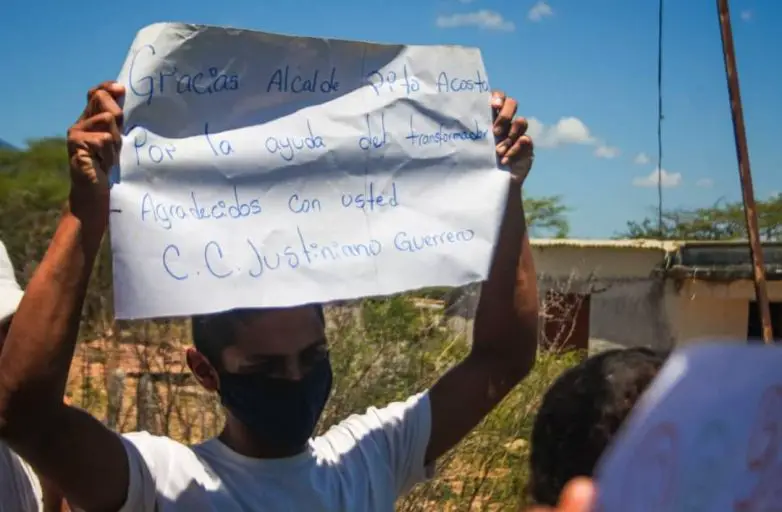 Gracias Alcalde Pito Acosta
Por la ayuda del transformador
Agradecidos con usted
C.C. Justiniano Guerrero